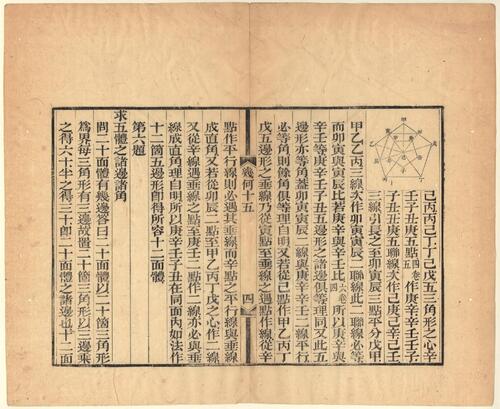 己丙丙己丁丁己戊五三角形之心辛
壬子丑庚五點作庚辛辛壬壬子
子丑丑庚五聯線次作己庚己辛己壬
三線引長之至卯寅辰三點平分戊甲
甲乙乙丙三線次作卯寅寅辰二聯線此二聯線必等
而卯寅與寅辰比若庚辛與辛壬比六卷四所以庚辛與
辛壬等庚辛壬子丑五邊形之諸邊俱等理同又此五
邊形亦等角蓋卯寅寅辰二線與庚辛辛壬二線平行
必等角則像角俱等理自明又若從己點作甲乙丙丁
戊五邊形之垂線乃從寅點至垂線之遇點作線從辛
幾何十五
四
點作平行線則必遇其垂線而辛點之平行線與垂線
成直角又若從卯辰二點至甲乙丙丁戊之心作二線
又從辛線遇垂線之點至庚壬二點作二線亦必與垂
線成直角理自明所以庚辛壬子丑在同面內如法作
十二箇五邊形即得所容十二面體
第六題
求五體之諸邊諸角
問二十面體有幾邊答曰二十面體以二十箇三角形
為界每三角形有三邊故置二十箇三角形以三邊乘
之得六十半之得三十即二十面體之諸邊也十二面